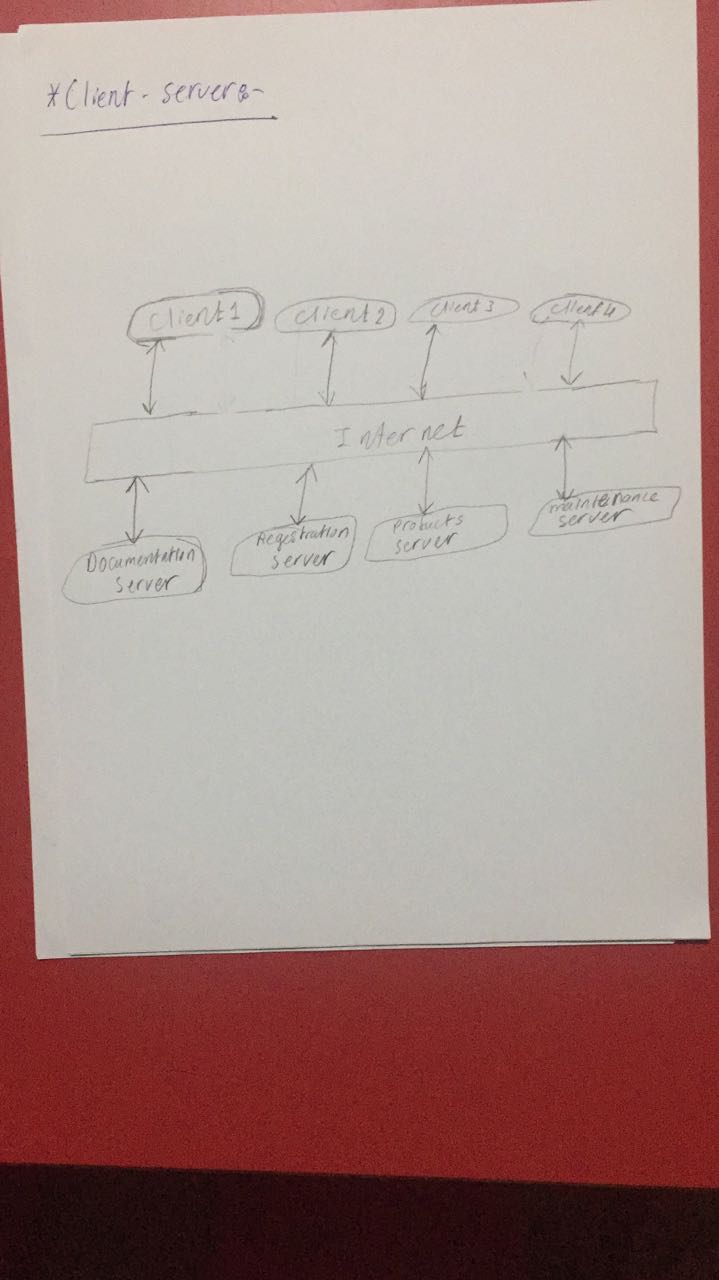 *Client - server:-
Client 1
client 2
client 3
client 4
Internet
Documentation
server
Regestration
server
Products
server
maintenance
server